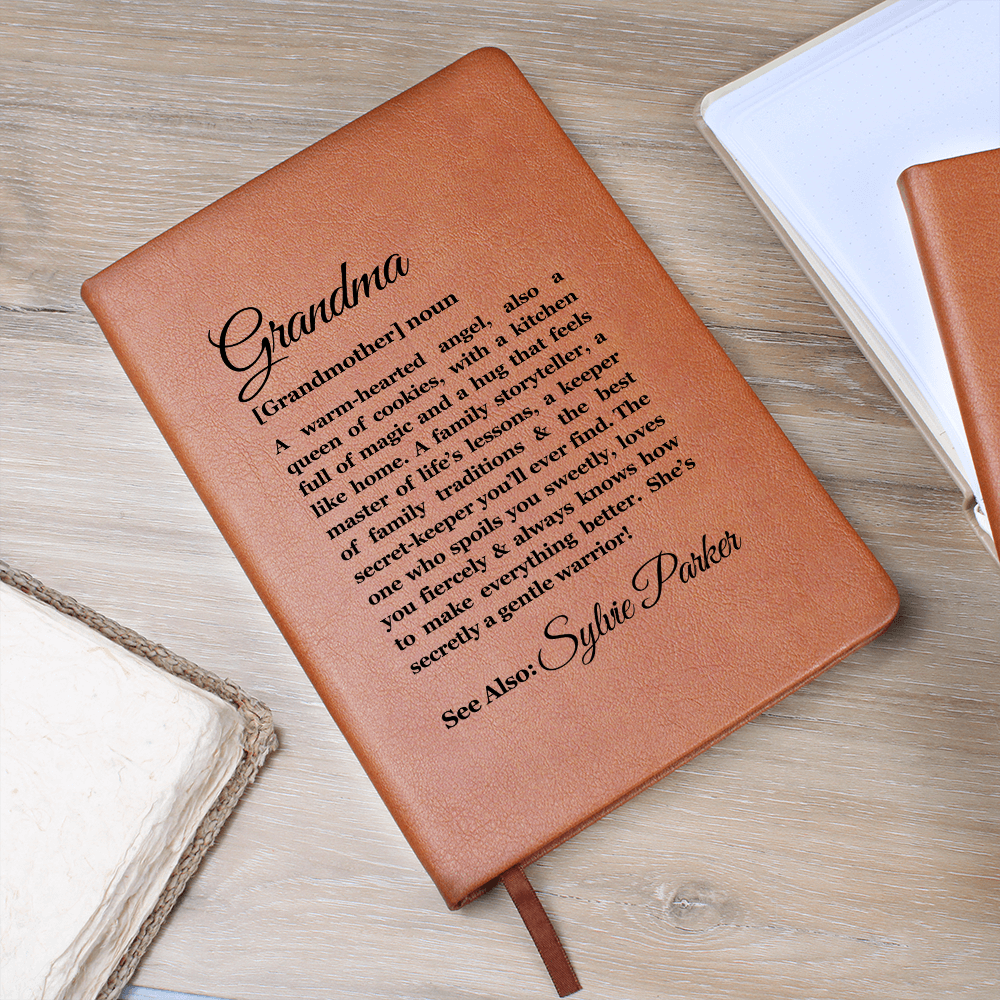 Grandma
[Grandmother] noun
A warm-hearted angel, also a
queen of cookies, with a kitchen
full of magic and a hug that feels
like home. A family storyteller, a
master of life’s lessons, a keeper
of family traditions & the best
secret-keeper you’ll ever find. The
one who spoils you sweetly, loves
you fiercely & always knows how
to make everything better. She’s
secretly a gentle warrior!
See Also: Sylvie Parker